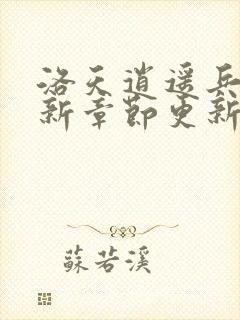 洛天逍遥兵
新章节更新
蘇若溪